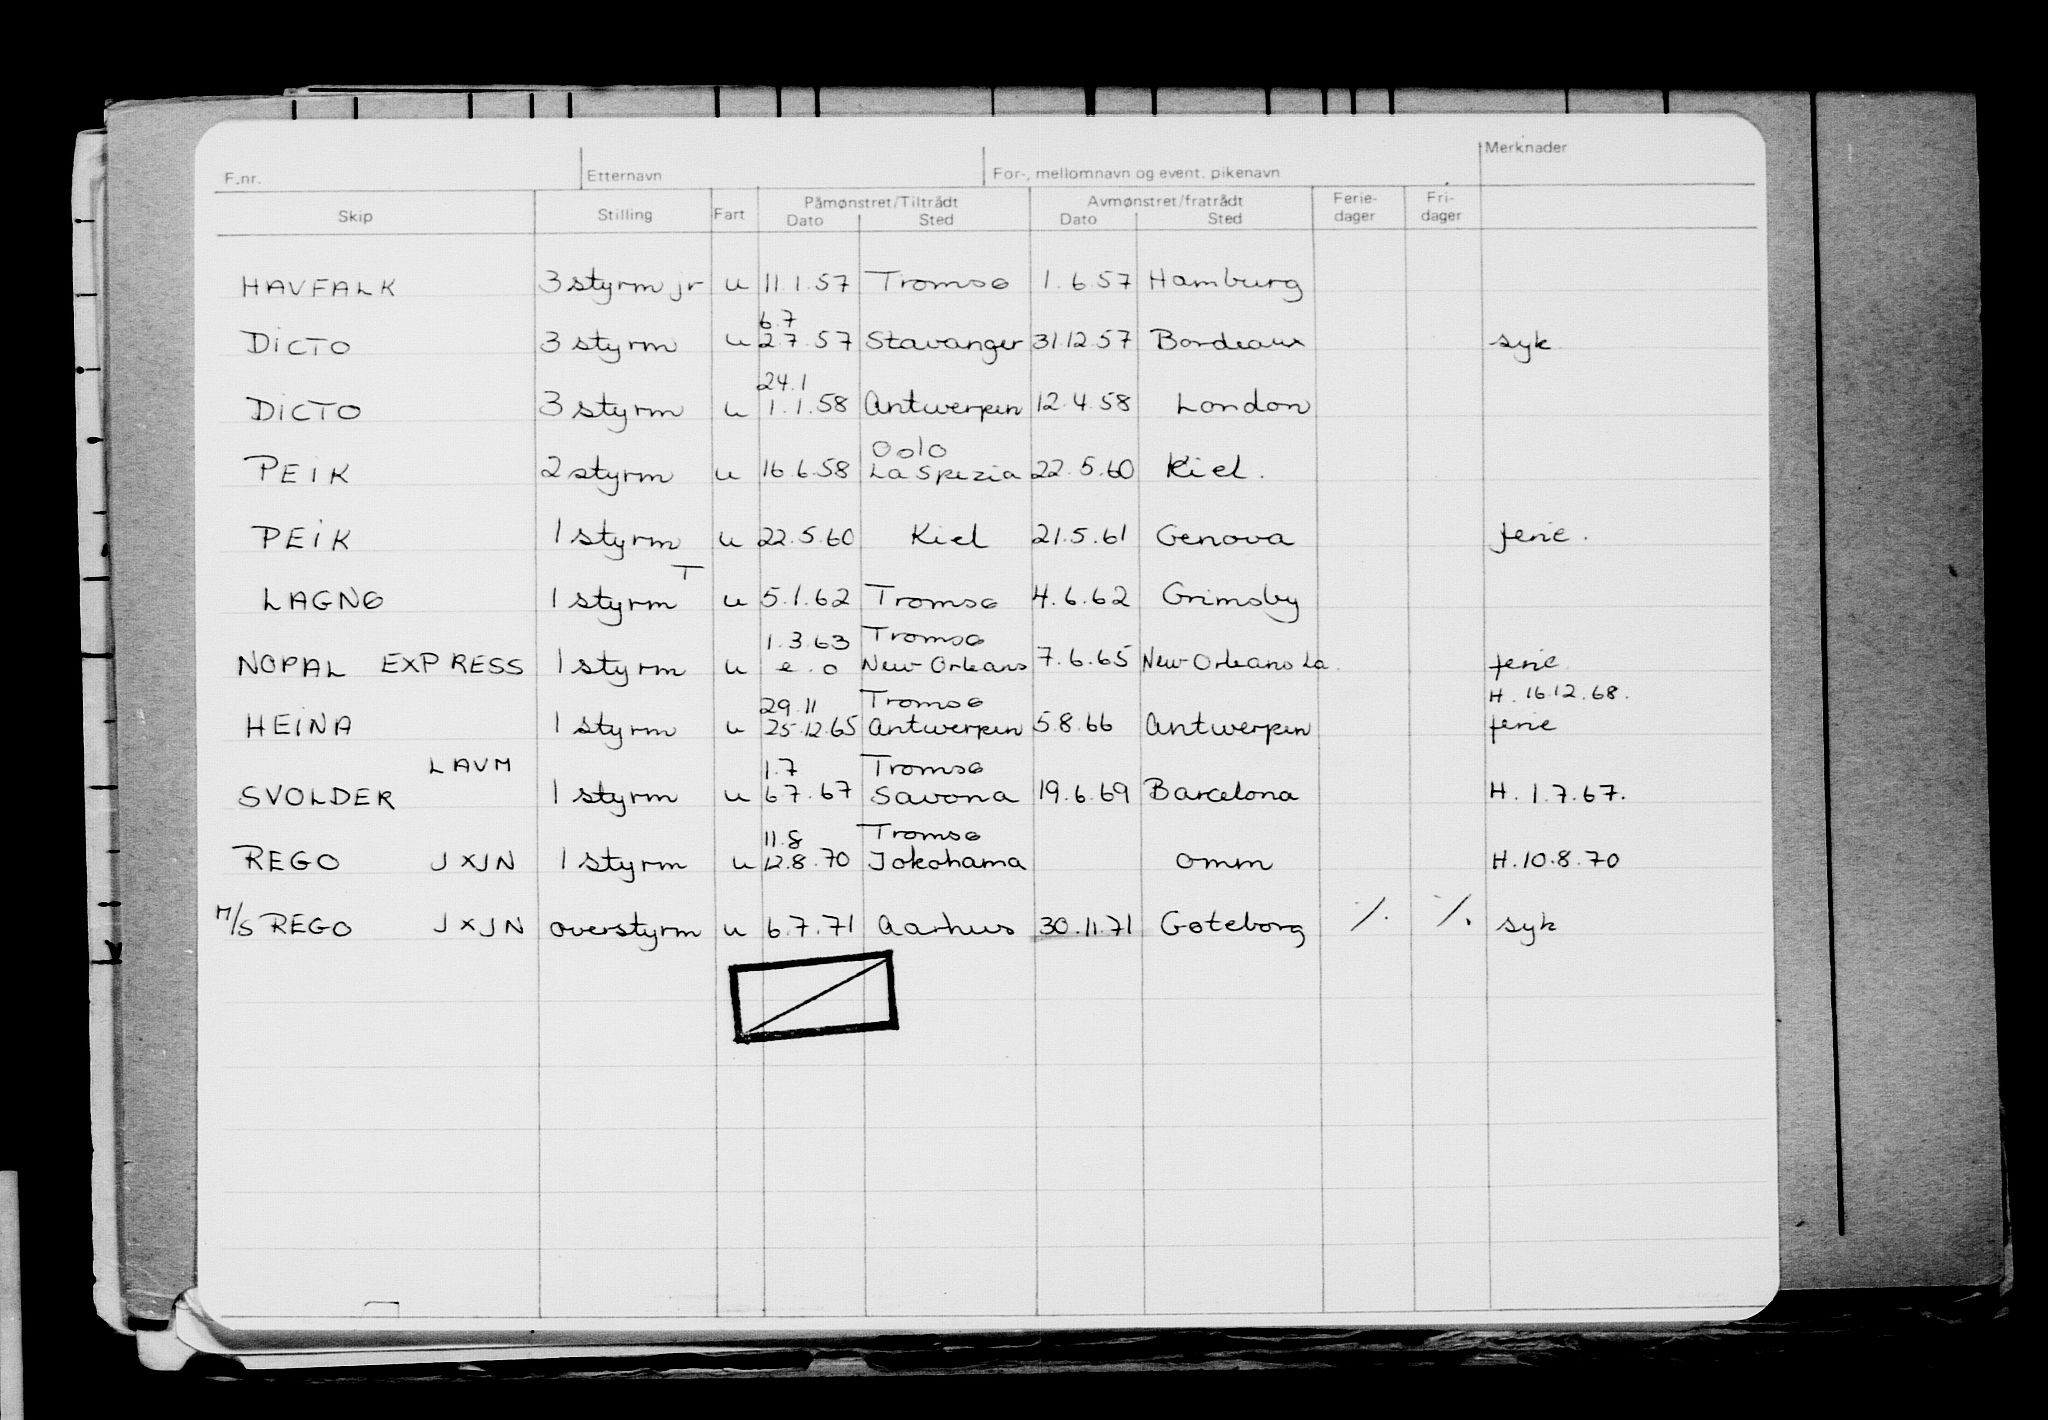 F.nr. Etternavn For-, mellomnavn og event. pikenavn Merknader
Skip Stilling Fart Påmønstret/Tiltrådt Avmønstret/fratrådt Ferie- Fri-
Dato Sted Dato Sted dager dager
HAVFALK 3 styrm jr u 11.1.57 Tromsø 1.6.57 Hamburg
6.7
DICTO 3 styrm u 2.7.57 Stavanger 31.12.57 Bordeaux syk
24.1
DICTO 3 styrm u 1.1.58 Antwerpen 12.4.58 London
Oslo
PEIK 2 styrm u 16.6.58 La Spezia 22.5.60 Kiel.
PEIK 1 styrm u 22.5.60 Kiel 21.5.61 Genova ferie.
T
LAGNØ 1 styrm u 5.1.62 Tromsø 4.6.62 Grimsby
1.3.63 Tromsø
NOPAL EXPRESS 1 styrm u e.o New Orleans 7.6.65 New Orleans La. ferie
29.11 Tromsø H. 16.12.68.
HEINA 1 styrm u 25.12.65 Antwerpen 5.8.66 Antwerpen ferie
LAVM 1.7 Tromsø
SVOLDER 1 styrm u 6.7.67 Savona 19.6.69 Barcelona H. 1.7.67.
11.8 Tromsø
REGO JXJN 1 styrm u 12.8.70 Jokohama omm H. 10.8.70
M/S REGO JXJN overstyrm u 6.7.71 Aarhus 30.11.71 Gøteborg ./. ./. syk